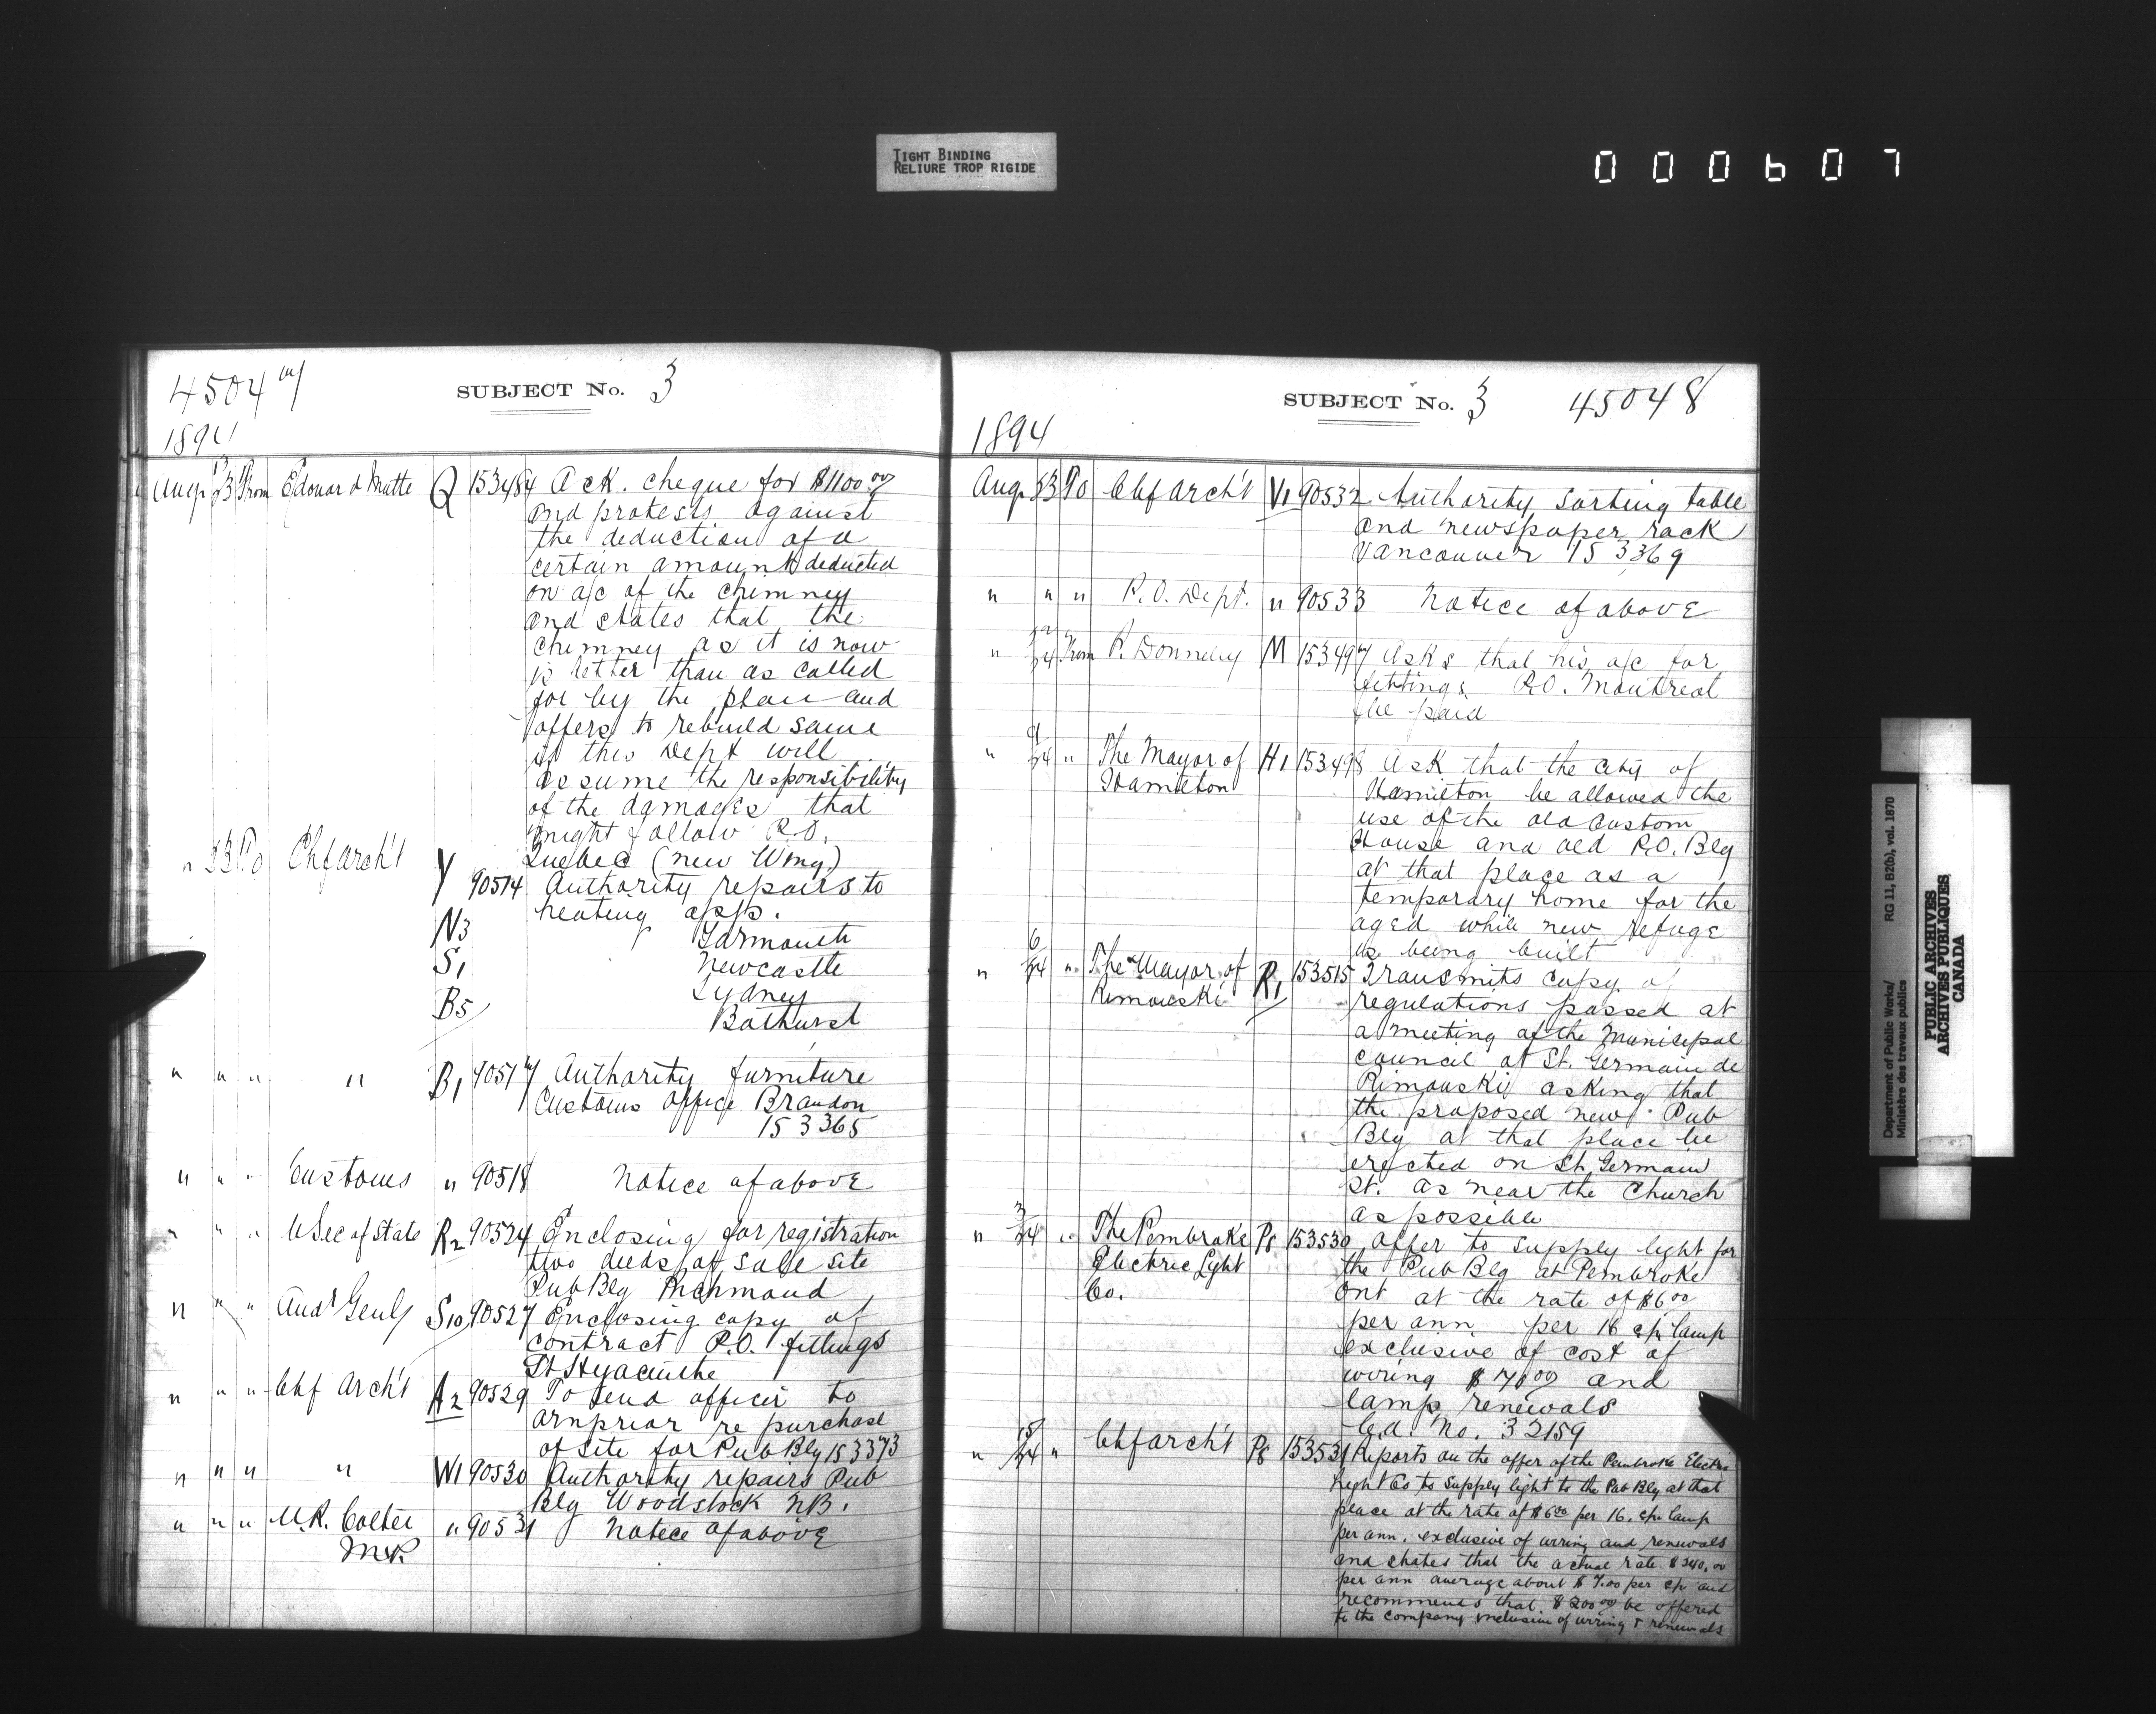 TIGHT BINDING
RELIURE TROP RIGIDE
000607
45047
SUBJECT No. 3
1894
Aug 23 From Edouard Matte Q 153484 Ack. cheque for $1100.00
and protests against
the deduction of a
certain amount deducted
on a/c of the chimney
and states that the
chimney as it is now
is better than as called
for by the plan and
offers to rebuild same
if this Dept will
assume the responsibility
of the damages that
might follow P.O.
Quebec (new Wing)
" 23 To Chf arch't Y 90514 Authority repairs to
heating app.
Yarmouth
N3 Newcastle
S1 Sydney
B5 Bathurst
" " " " B1 90517 Authority furniture
Customs office Brandon
153365
" " " Customs " 90518 Notice of above
" " " U Sec of State R2 90524 Enclosing for registration
two deeds of sale site
Pub Blg Richmond
" " " Audr Genl S10 90527 Enclosing copy of
contract P.O. fittings
St Hyacinthe
" " " Chf Arch't A2 90529 To send officer to
arnprior re purchase
of site for Pub Blg 153373
" " " " W1 90530 Authority repairs Pub
Blg Woodstock NB.
" " " Colter " 90531 Notice of above
M.P.
SUBJECT No. 3 45048
1894
Aug 23 To Chf arch't V1 90532 Authority sorting table
and newspaper rack
Vancouver 153369
" " " P.O. Dept. " 90533 Notice of above
" 24 From P. Donnelly M 153497 Asks that his a/c for
fittings P.O. Montreal
be paid
" 9/24 " The Mayor of H1 153498 Ask that the city of
Hamilton Hamilton be allowed the
use of the old Custom
House and old P.O. Blg
at that place as a
temporary home for the
aged while new refuge
is being built
" 6/24 " The Mayor of R1 153515 Transmits copy of
Rimouski regulations passed at
a meeting of the Municipal
Council at St. Germain de
Rimouski asking that
the proposed new Pub
Blg at that place be
erected on St. Germain
St. as near the Church
as possible
" 3/24 " The Pembroke P8 153530 Offer to supply light for
Electric Light the Pub Blg at Pembroke
Co. Ont at the rate of $6.00
per ann per 16 cp. lamp
exclusive of cost of
wiring $70.00 and
lamp renewals
Cd. No. 32159
" 15/24 " Chf arch't P8 153531 Reports on the offer of the Pembroke Electric
Light Co to supply light to the Pub Blg at that
place at the rate of $6.00 per 16. cp. lamp
per ann. exclusive of wiring and renewals
and states that the actual rate $240.00
per ann average about $7.00 per cp and
recommends that $200.00 be offered
to the company inclusive of wiring & renewals
Department of Public Works/
Ministère des travaux publics
RG 11, B2(b), vol. 1870
PUBLIC ARCHIVES
ARCHIVES PUBLIQUES
CANADA